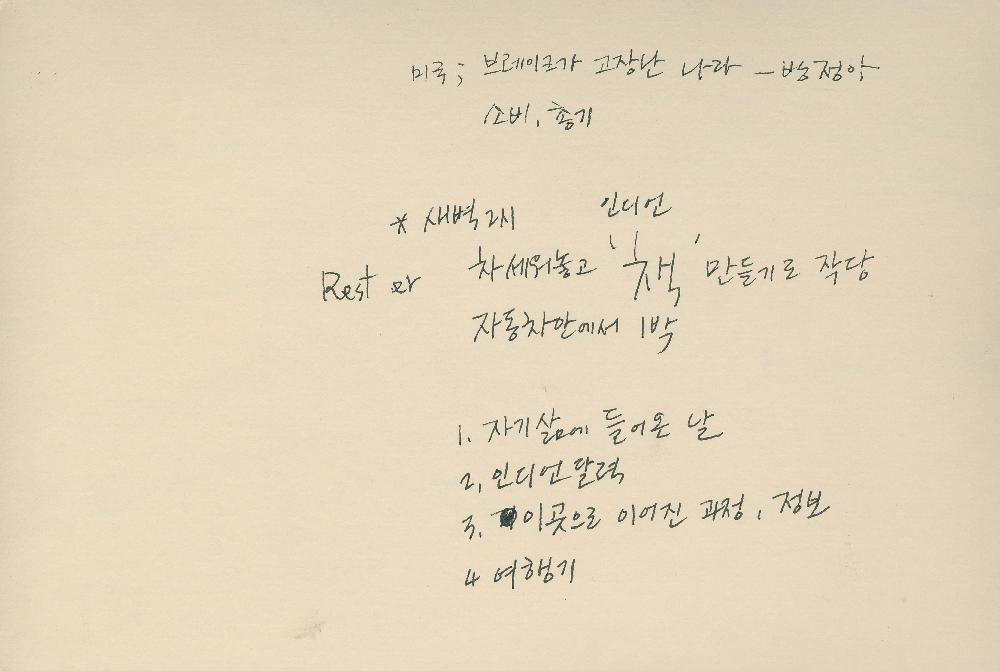 미국; 브레이크가 고장난 나라 - 방정아
소비, 총기
* 새벽 2시 인디언
Rest er 차세워놓고 '책' 만들기로 작당
자동차안에서 1박
1. 자기삶에 들어온 날
2, 인디언달력
3. 이곳으로 이어진 과정, 정보
4 여행기